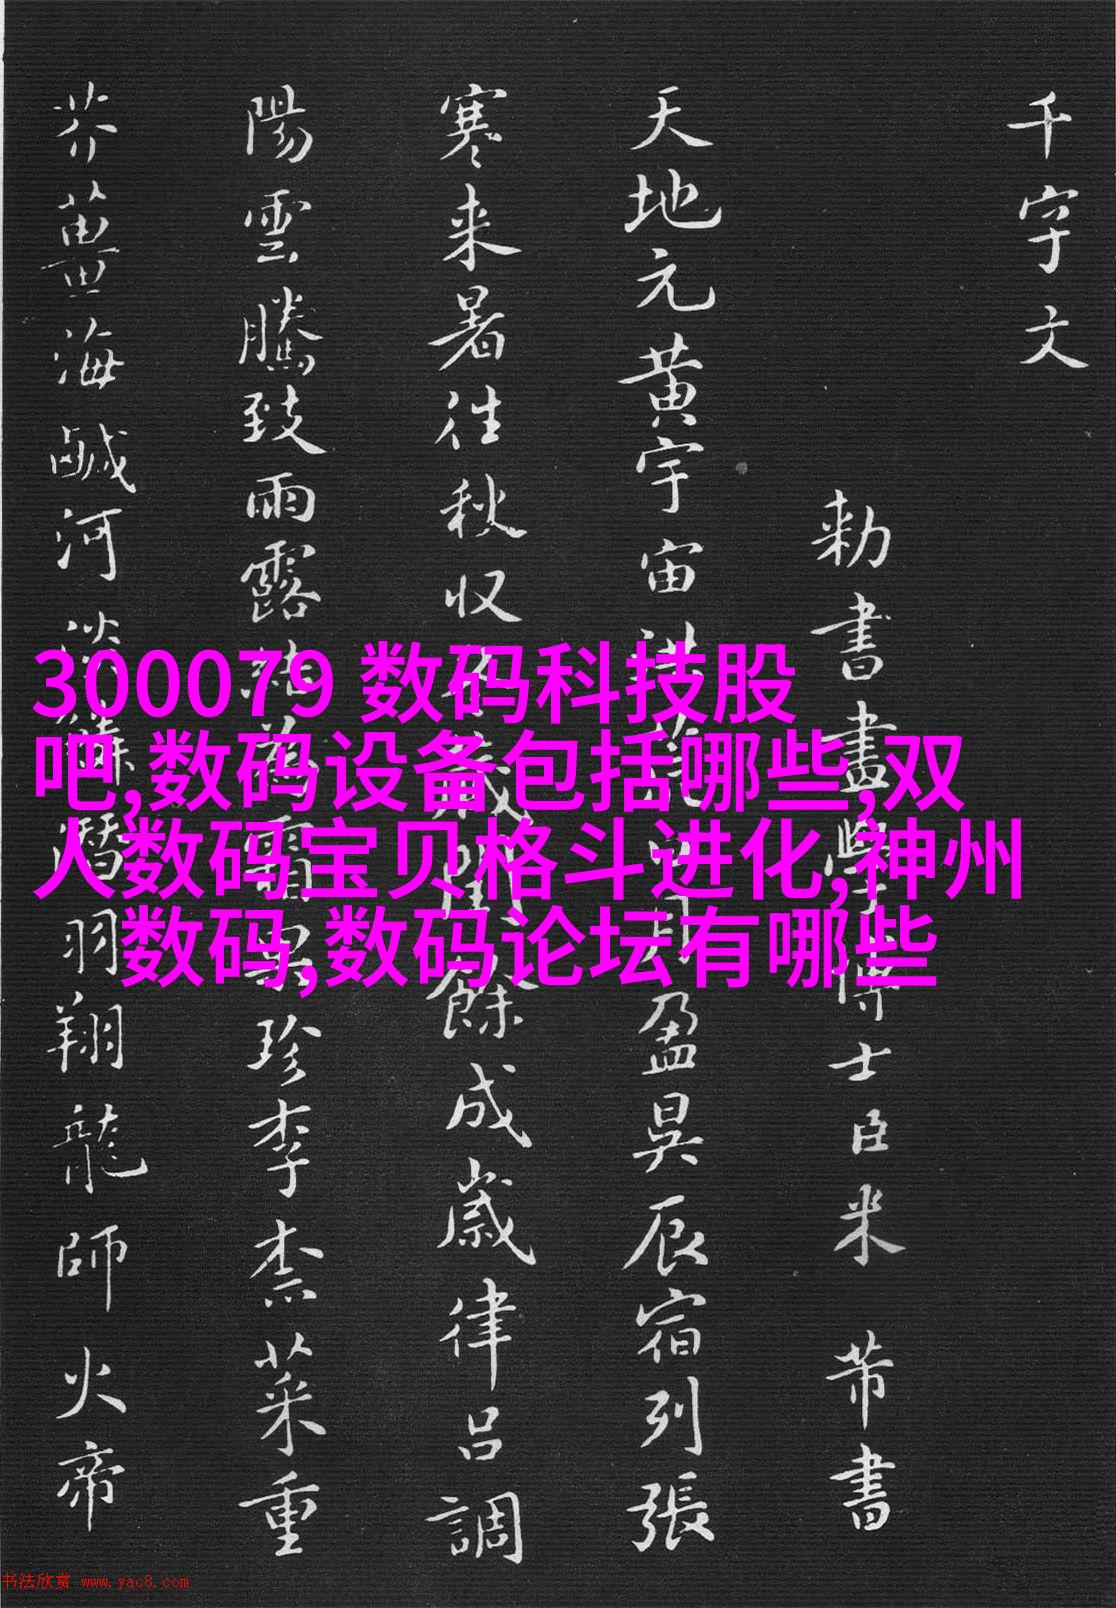 千字文
勅書畫學博士臣米芾書
天地元黄宇宙洪荒日月盈昃辰宿列張
寒来暑往秋収冬藏閏餘成歲律呂調
陽雲騰致雨露結為霜果珍李柰菜重
芥薑海鹹河淡鱗潛羽翔龍師火帝
300079 数码科技股
吧,数码设备包括哪些,双
人数码宝贝格斗进化,神州
数码,数码论坛有哪些
书法欣赏 www.yac8.com